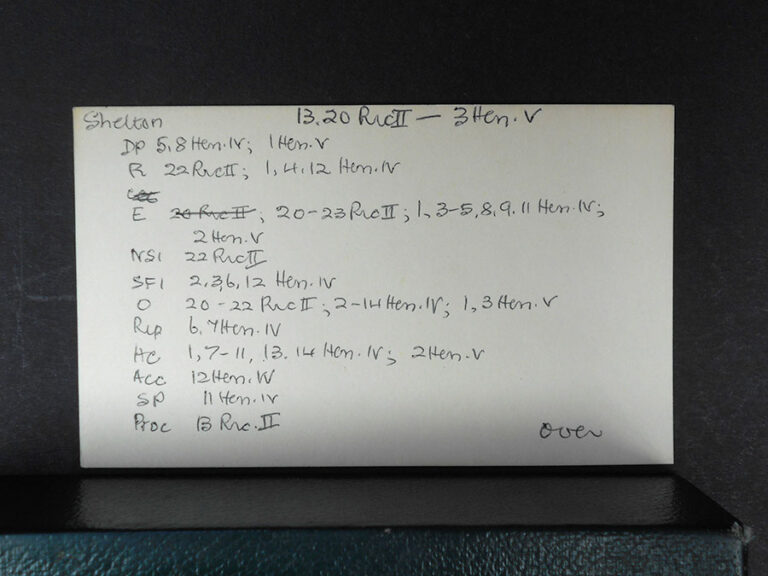 Shelton 13.20 RicII — 3 Hen. V
DP 5,8 Hen. IV; 1 Hen. V
R 22 RicII; 1, 4.12 Hen. IV
E 20 Ric II; 20-23 RicII; 1, 3-5, 8, 9. 11 Hen. IV;
2 Hen. V
NSI 22 RicII
SFI 2, 3,6, 12 Hen. IV
O 20-22 Ric II; 2-14 Hen. IV; 1, 3 Hen. V
Rep 6, 7 Hen. IV
HC 1, 7-11, 13. 14 Hen. IV; 2 Hen. V
Acc 12 Hen. IV
SP 11 Hen. IV
Proc 13 Ric. II
over